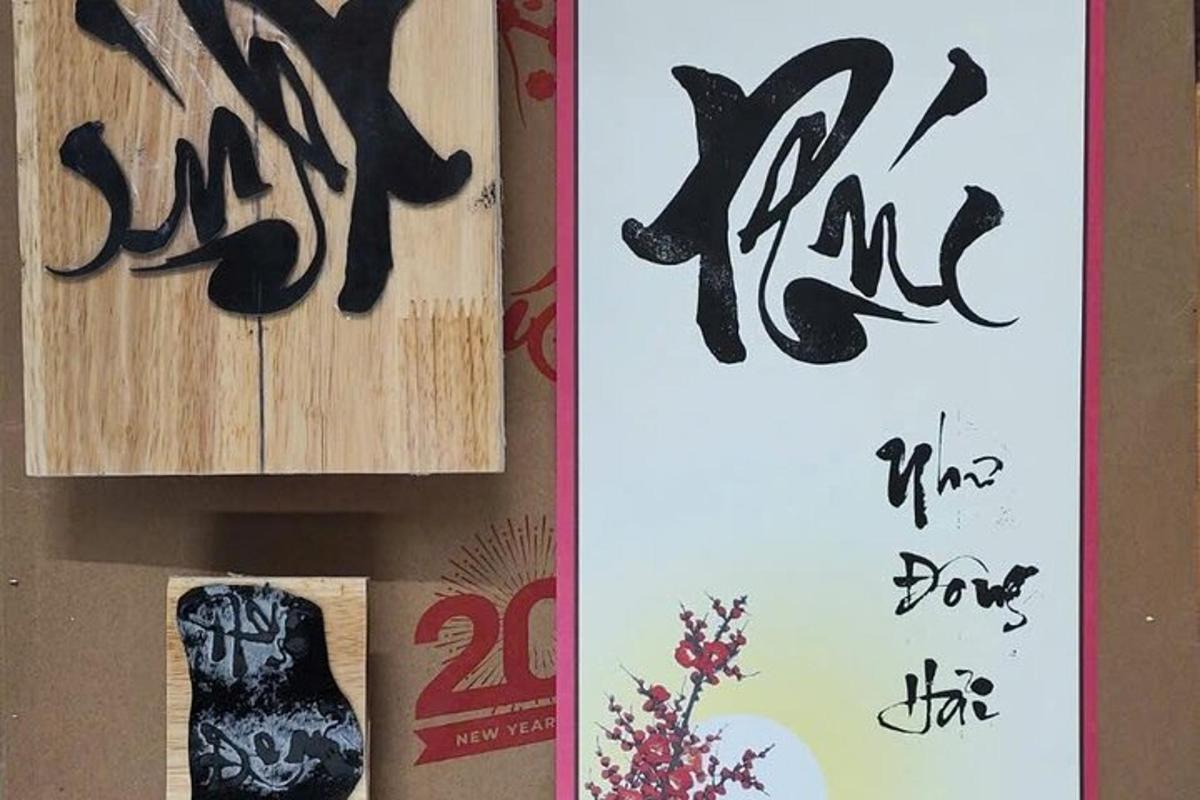 Phúc
Như
Đông
Hải
20
NEW YEAR